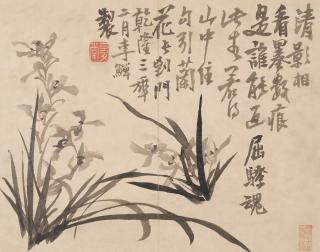 清影相
看墨數痕
是誰能返屈騷魂
此生若得
山中住
勾引蘭
花上到門
乾隆三
二月李鱓
製